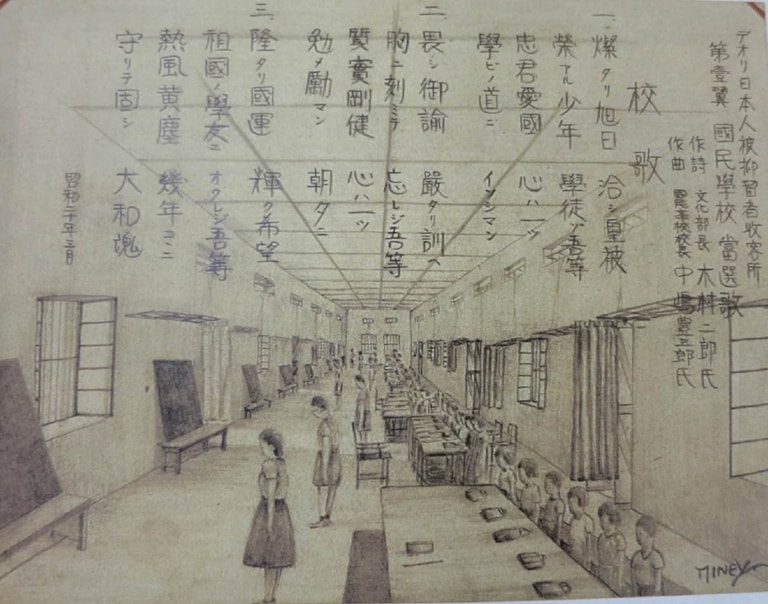 デオリ日本人被抑留者收容所
第壹翼 國民學校當選歌
作詩 文化部長 木村二郎氏
作曲 校長 中嶋豊三郎氏
校歌
一、燦タリ旭日 洽シ皇被
榮アル少年 學徒ゾ吾等
忠君愛國 心ハ一ツ
學ビノ道ニ イソシマン
二、畏シ御諭 嚴タリ訓ヘ
胸ニ刻ミテ 忘レジ吾等
質實剛健 心ハ一ツ
勉メ勵マン 朝夕ニ
三、隆タリ國運 輝ク希望
祖國ノ學友ニ オクレジ吾等
熱風黄塵 幾年コヽニ
守リテ固シ 大和魂
昭和二十年三月